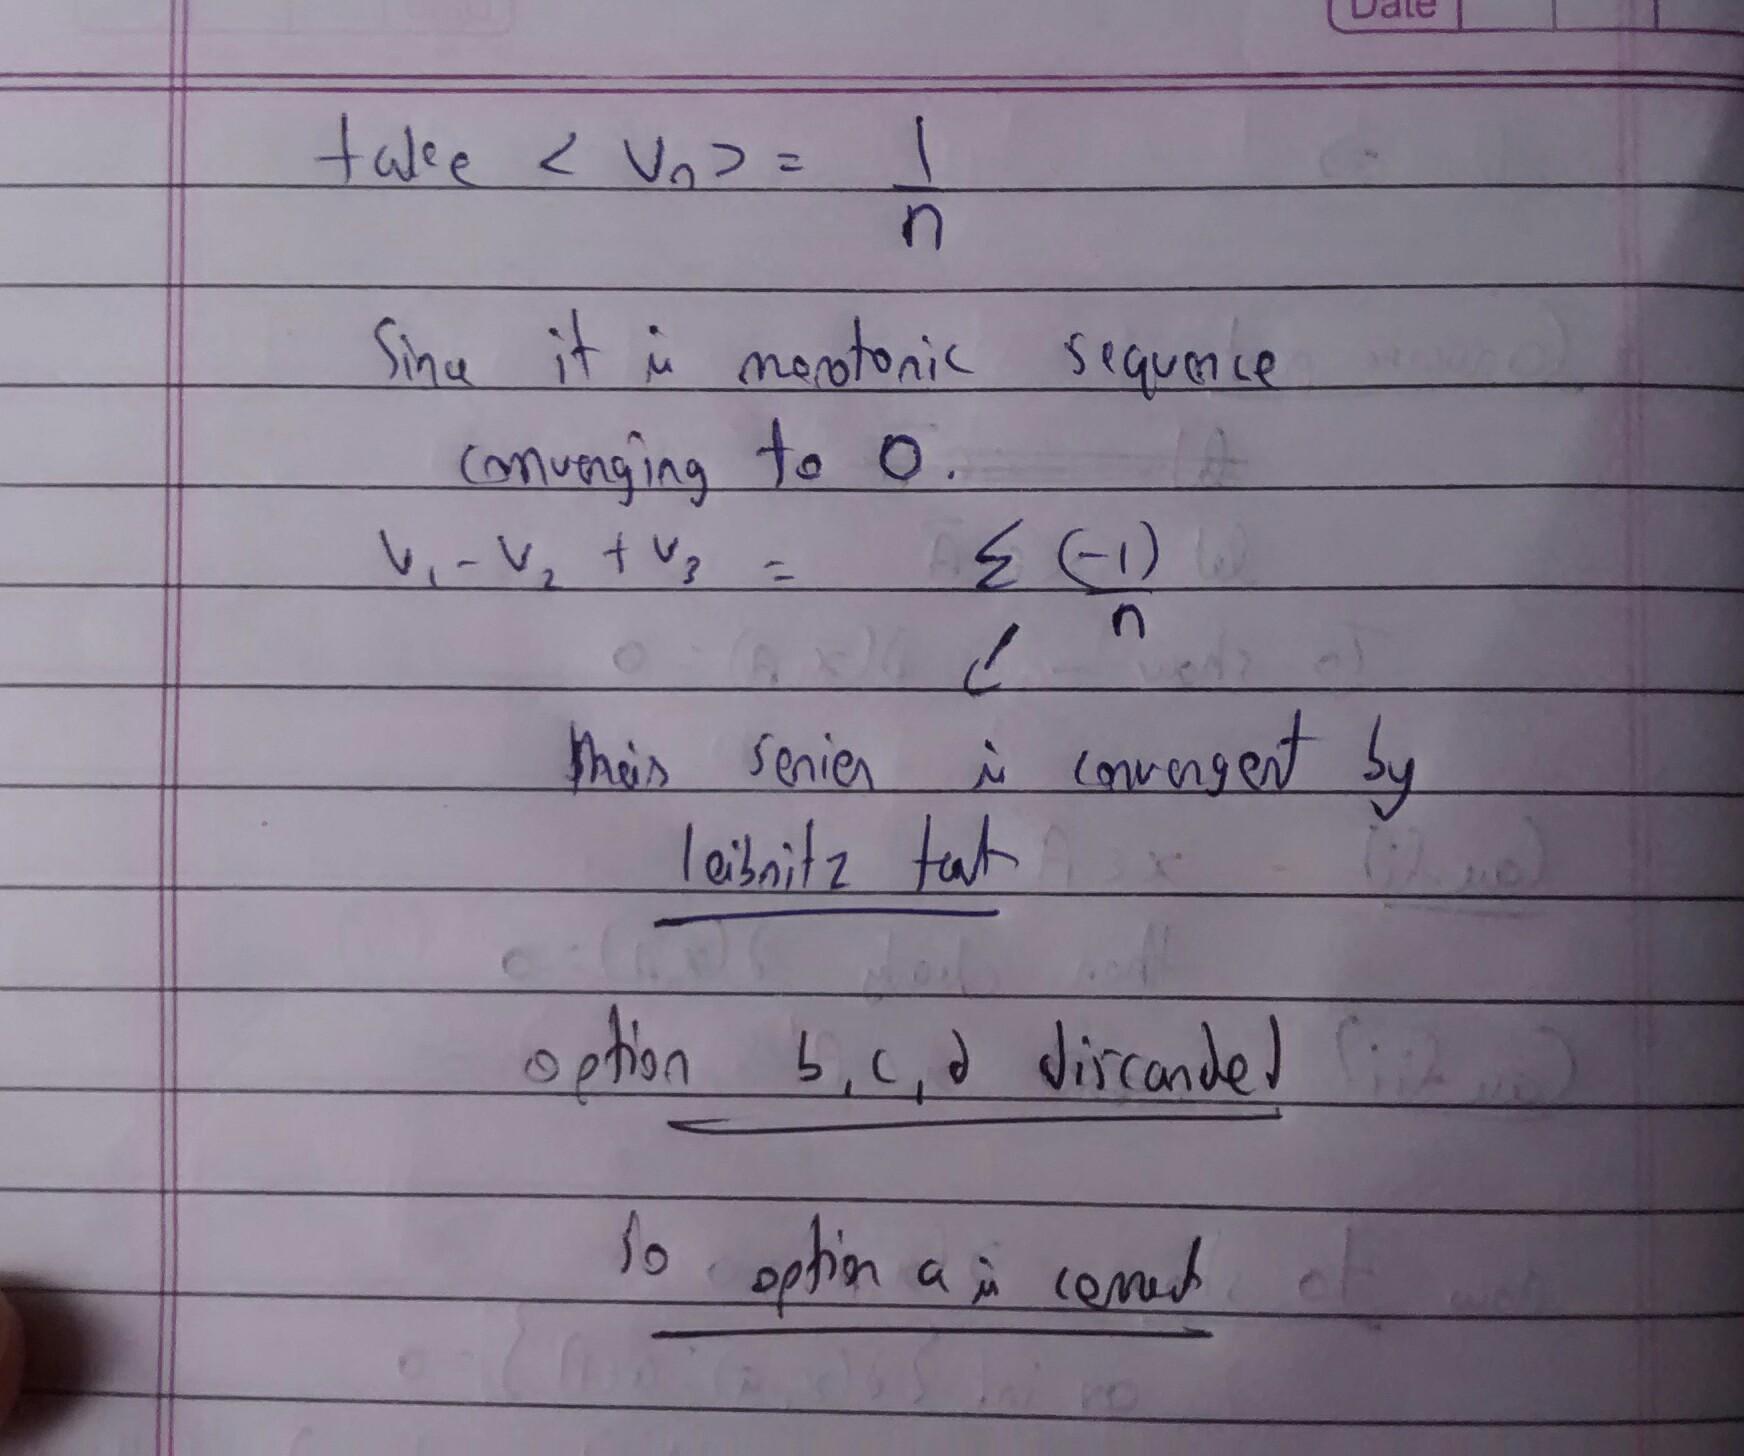 Date
take < Vn > = 1/n
Since it is monotonic sequence
converging to 0.
V1 - V2 + V3 = Σ (-1)/n
this series is convergent by
leibnitz test
option b, c, d discarded
So option a is correct